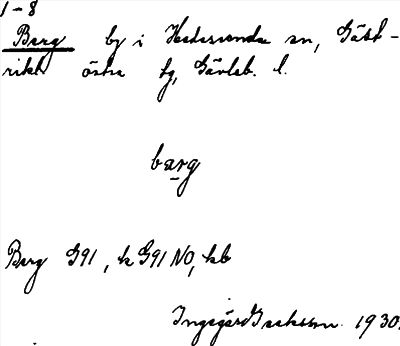 1-8
Berg by i Hedesunda sn, Gäst-
rikl östra tg, Gävleb. l.
barg
Berg G91, k G91 NO, kb
Ingegärd Isaksson. 1930.